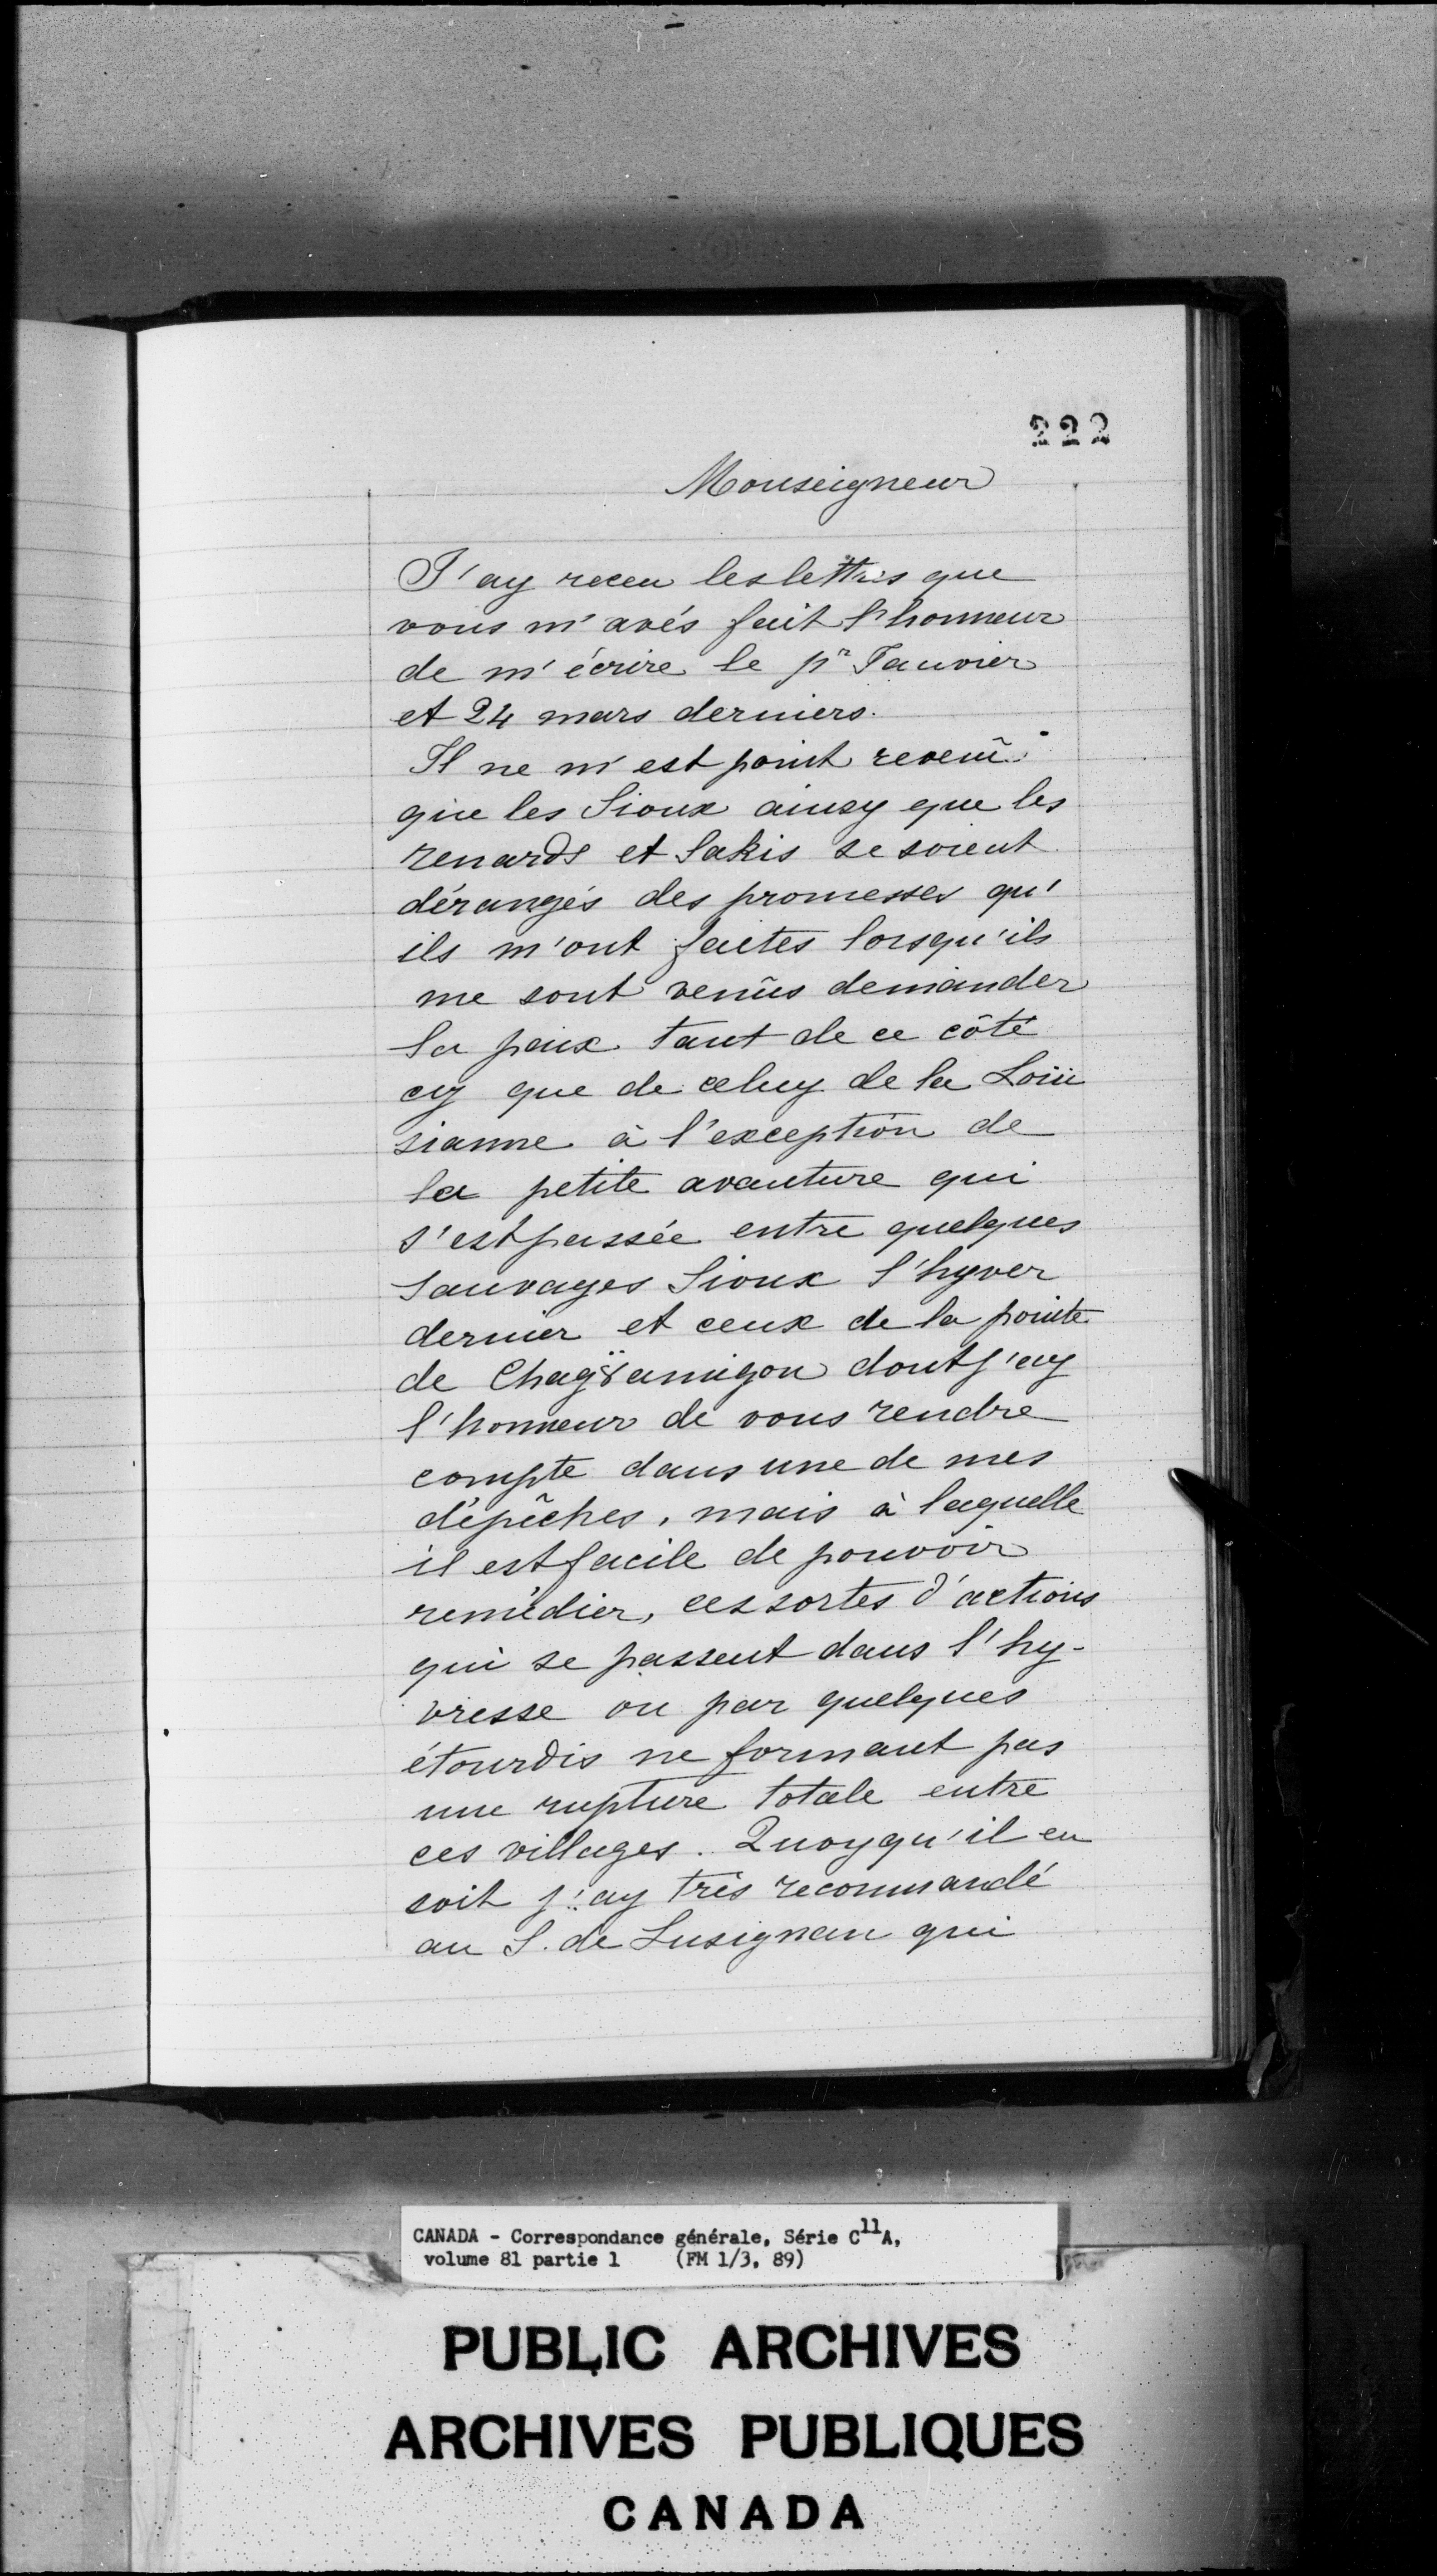 222
Monseigneur
J'ay receu les lettres que
vous m'avés fait l'honneur
de m'écrire le pr Janvier
et 24 mars derniers.
Il ne m'est point revenû
que les Sioux ainsy que les
renards et Sakis se soient
dérangés des promesses qu'
ils m'ont faites lorsqu'ils
me sont venûs demander
la paix tant de ce côté
cy que de celuy de la Loüi
sianne à l'exception de
la petite avanture qui
s'est passée entre quelques
Sauvages Sioux l'hyver
dernier et ceux de la pointe
de Chag8amigon dont j'ay
l'honneur de vous rendre
compte dans une de mes
dépêches, mais à laquelle
il est facile de pouvoir
remédier, ces sortes d'actions
qui se passent dans l'hy-
vresse ou par quelques
étourdis ne formant pas
une rupture totale entre
ces villages. Quoyqu'il en
soit j'ay très recommandé
au S. de Lusignan qui
CANADA - Correspondance générale, Série C11A,
volume 81 partie 1 (FM 1/3, 89)
PUBLIC ARCHIVES
ARCHIVES PUBLIQUES
CANADA